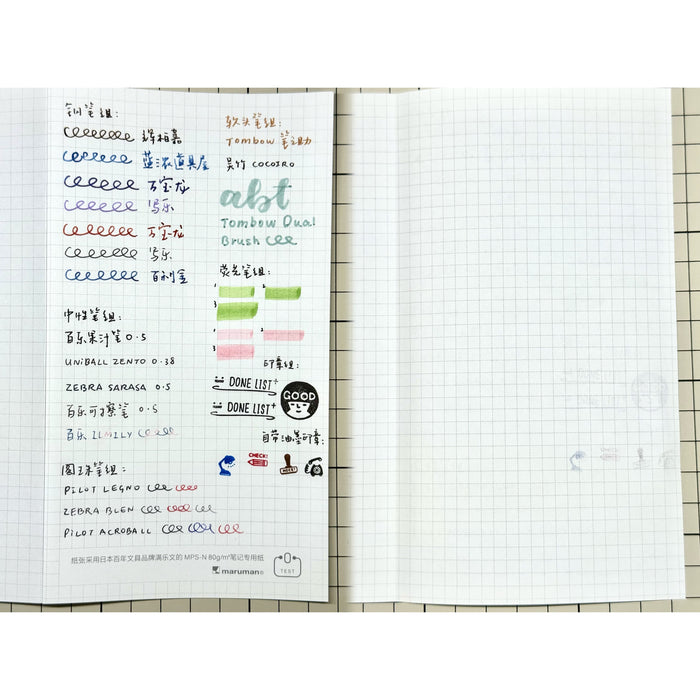 钢笔组:
辉柏嘉
蓝浓道具屋
万宝龙
写乐
万宝龙
写乐
百利金
中性笔组:
百乐果汁笔 0.5
UNIBALL ZENTO 0.38
ZEBRA SARASA 0.5
百乐可擦笔 0.5
百乐 ILMILY
圆珠笔组:
PILOT LEGNO
ZEBRA BLEN
PILOT ACROBALL
软头笔组:
Tombow 笔之助
吴竹 COCOIRO
abt
Tombow Dual
Brush
荧光笔组:
1 2
3
1 2
3
印章组:
DONE LIST+
GOOD
DONE LIST+
自带油墨印章:
CHECK!
纸张采用日本百年文具品牌满乐文的 MPS-N 80g/m²笔记专用纸
maruman®
0
TEST